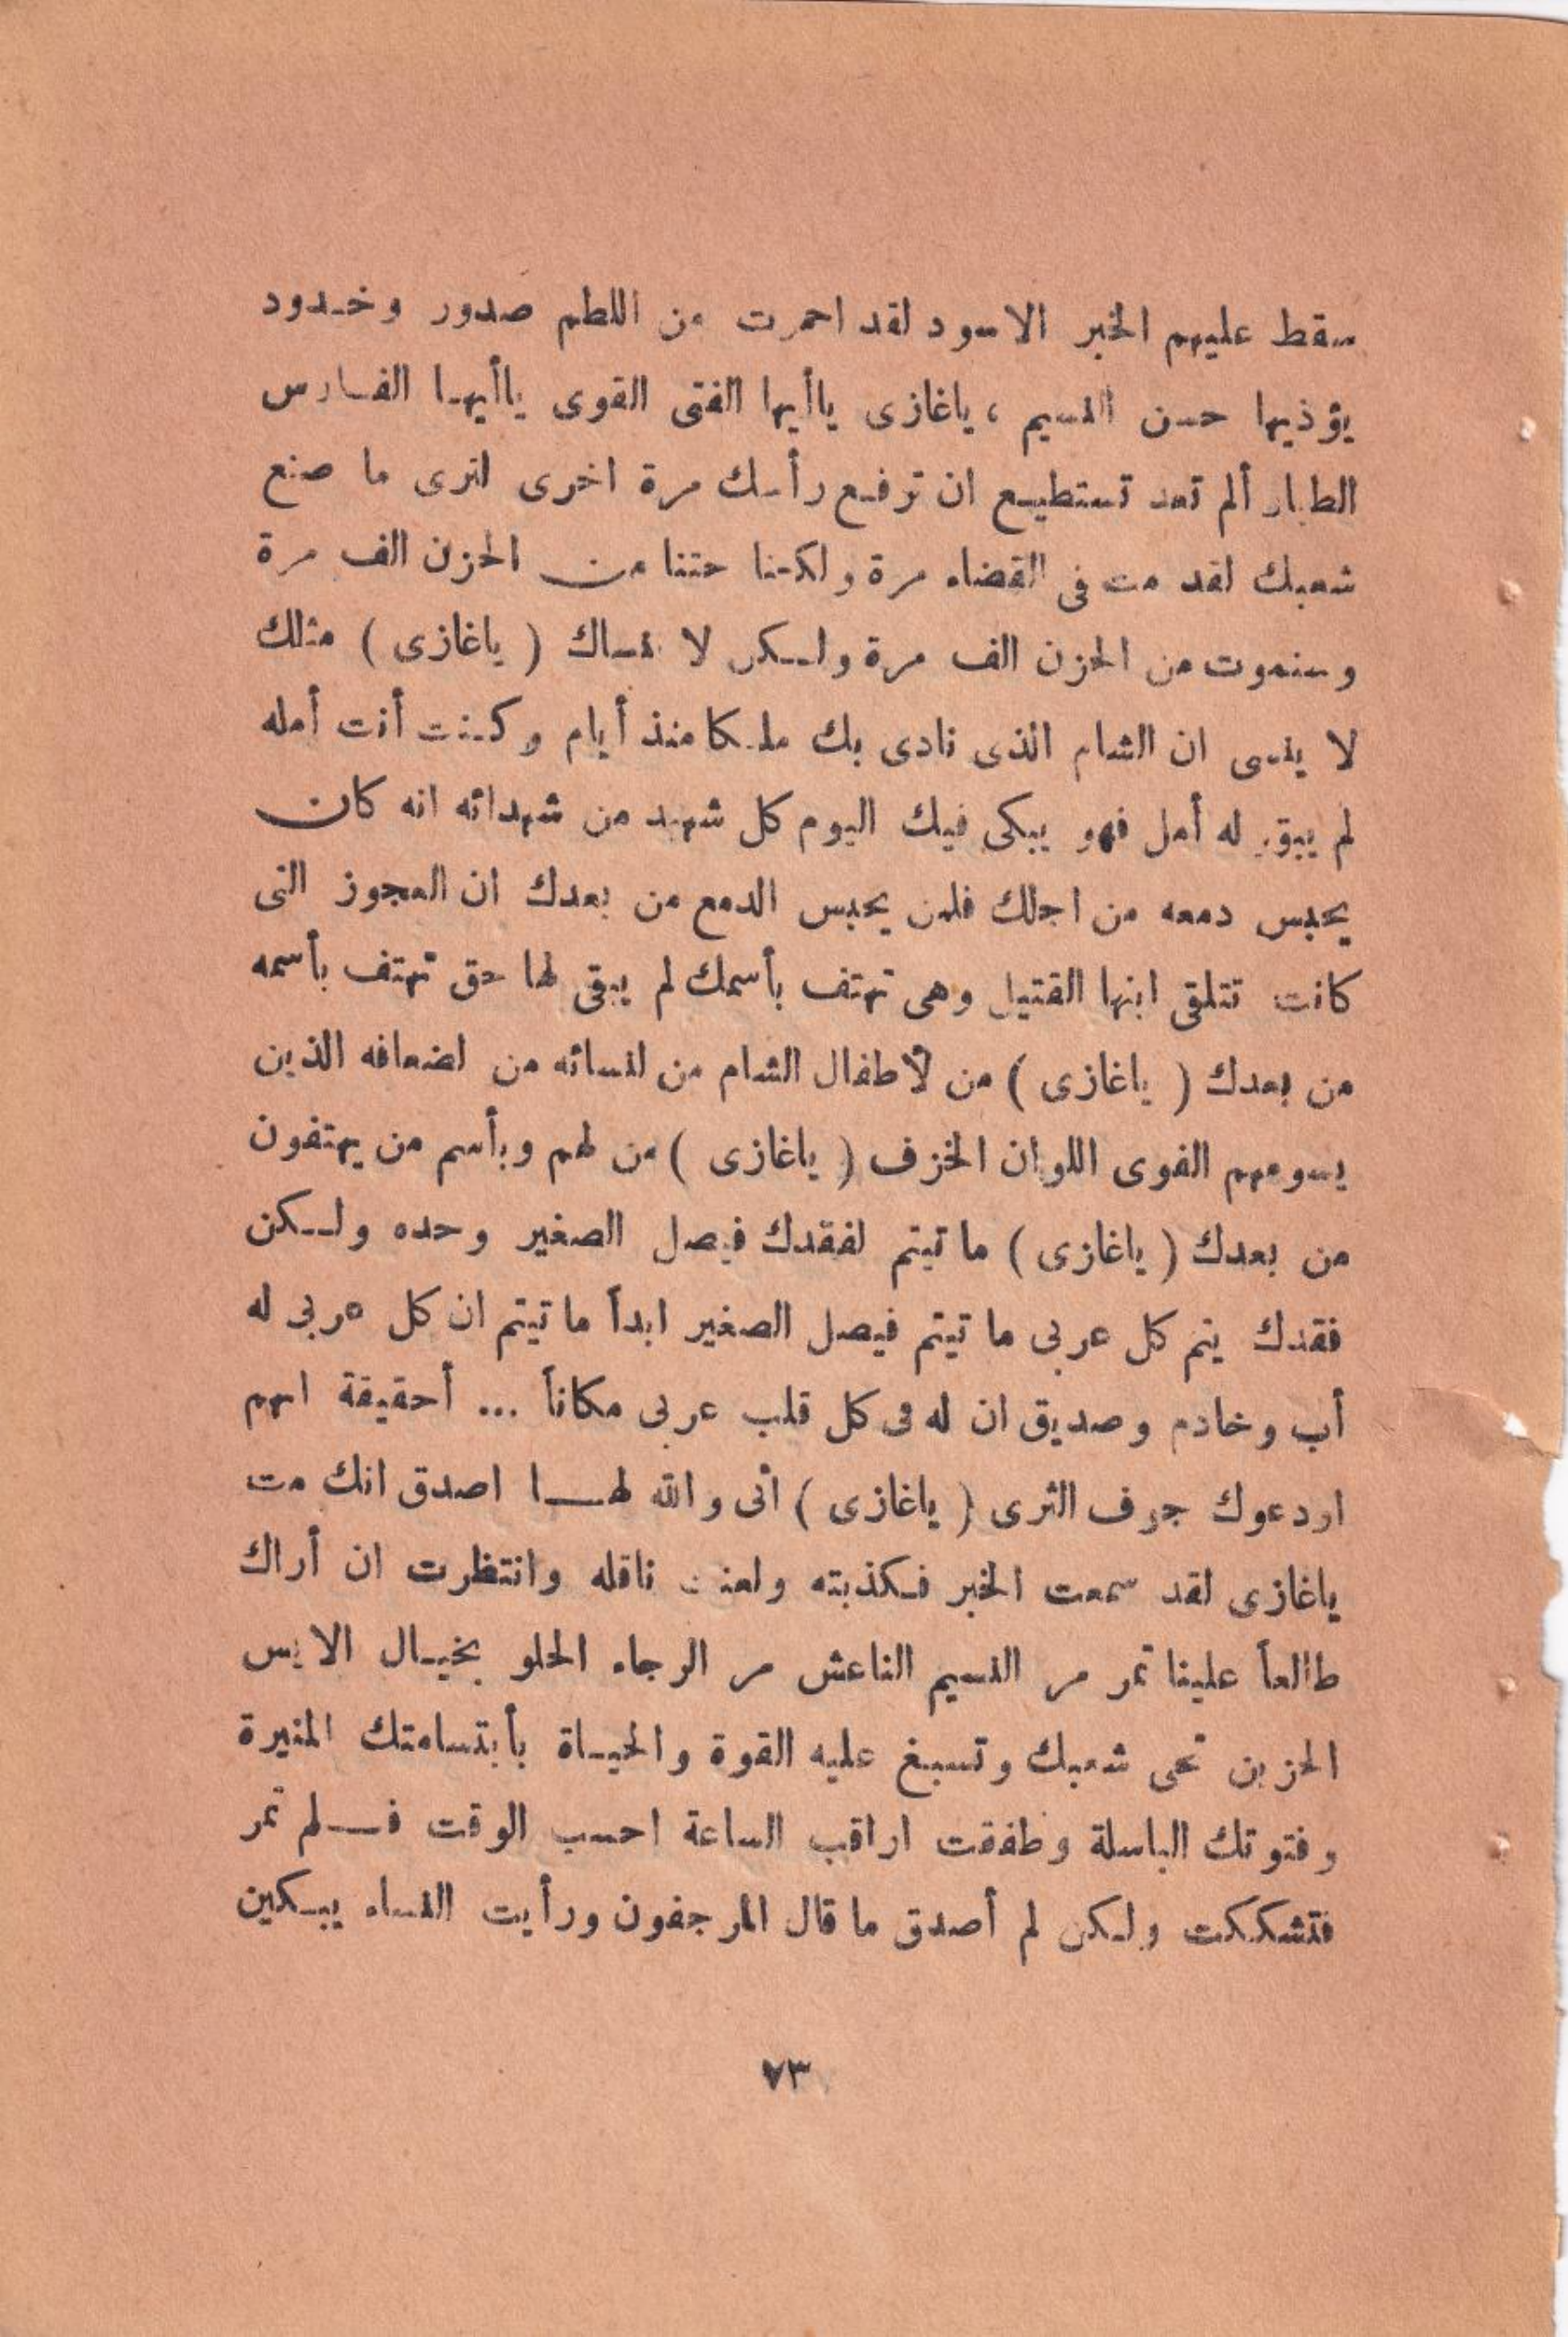 سقط عليهم الخبر الاسود لقد احمرت من اللطم صدور وخدود
يؤذيها حسن النسيم ، ياغازى ياأيها الفتى القوى ياأيها الفارس
الطيار ألم تعد تستطيع ان ترفع رأسك مرة اخرى لترى ما صنع
شعبك لقد مت فى القضاء مرة ولكننا متنا من الحزن الف مرة
وسنموت من الحزن الف مرة ولكن لا ننساك ( ياغازى ) مثلك
لا ينسى ان الشام الذى نادى بك ملكا منذ أيام وكنت أنت أمله
لم يبق له أمل فهو يبكى فيك اليوم كل شهيد من شهدائه انه كان
يحبس دمعه من اجلك فلمن يحبس الدمع من بعدك ان العجوز التى
كانت تتلقى ابنها القتيل وهى تهتف بأسمك لم يبقى لها حق تهتف بأسمه
من بعدك ( ياغازى ) من لأطفال الشام من لنسائه من لضعافه الذين
يسومهم القوى اللوان الخزف ( ياغازى ) من لهم وبأسم من يهتفون
من بعدك ( ياغازى ) ما تيتم لفقدك فيصل الصغير وحده ولكن
فقدك يتم كل عربى ما تيتم فيصل الصغير ابداً ما تيتم ان كل عربى له
أب وخادم وصديق ان له فى كل قلب عربى مكاناً ... أحقيقة انهم
اودعوك جوف الثرى ( ياغازى ) أنى والله لهـا اصدق انك مت
ياغازى لقد سمعت الخبر فكذبته ولعنت ناقله وانتظرت ان أراك
طالعاً علينا تمر مر النسيم الناعش مر الرجاء الحلو بخيال الايس
الحزين تحى شعبك وتسبغ عليه القوة والحياة بأبتسامتك المنيرة
وفتوتك الباسلة وطفقت اراقب الساعة احسب الوقت فلم تمر
فتشككت ولكن لم أصدق ما قال المرجفون ورأيت النساء يبكين
٧٣